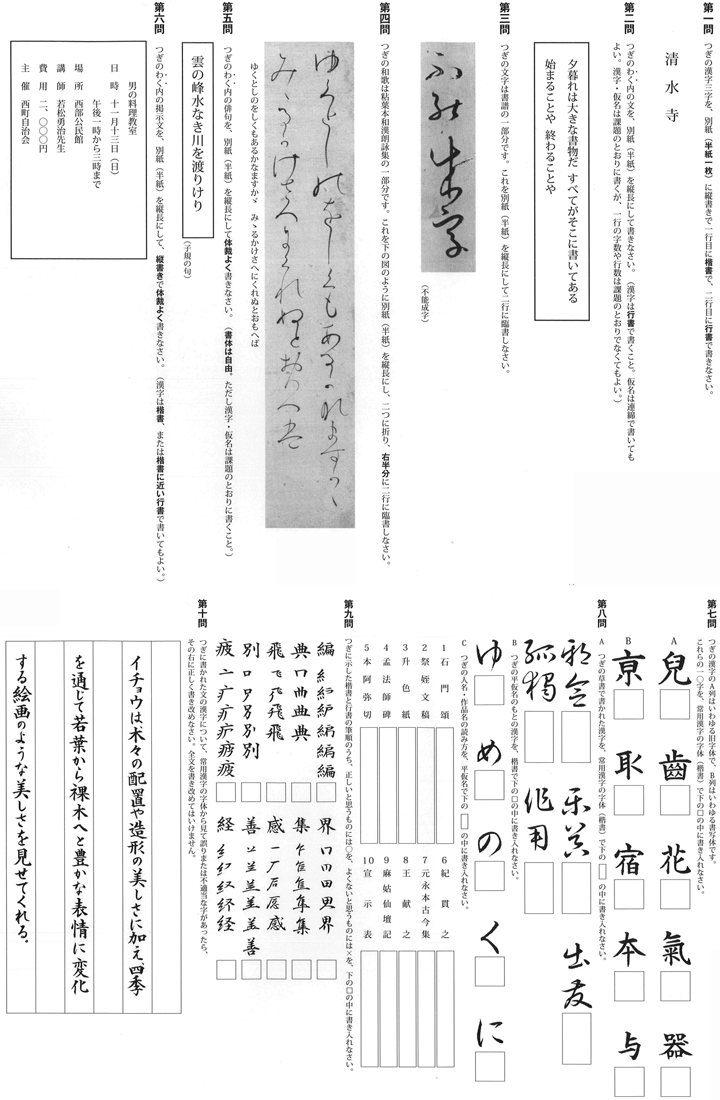 第一問 つぎの漢字三字を、別紙(半紙一枚)に縦書きで一行目に楷書で、二行目に行書で書きなさい。
清水寺
第二問 つぎのわく内の文を、別紙(半紙)を縦長にして書きなさい。(漢字は行書で書くこと。仮名は連綿で書いても
よい。漢字・仮名は課題のとおりに書くが、一行の字数や行数は課題のとおりでなくてもよい。)
夕暮れは大きな書物だ すべてがそこに書いてある
始まることや 終わることや
第三問 つぎの文字は書譜の一部分です。これを別紙(半紙)を縦長にして二行に臨書しなさい。
不能成字
(不能成字)
第四問 つぎの和歌は粘葉本和漢朗詠集の一部分です。これを下の図のように別紙(半紙)を縦長にし、二つに折り、右半分に二行に臨書しなさい。
ゆくとしのをしくもあるかなますかゞ みゝるかけさへにくれぬとおもへば
第五問 つぎのわく内の俳句を、別紙(半紙)を縦長にして体裁よく書きなさい。(書体は自由。ただし漢字・仮名は課題のとおりに書くこと。)
雲の峰水なき川を渡りけり
(子規の句)
第六問 つぎのわく内の掲示文を、別紙(半紙)を縦長にして、縦書きで体裁よく書きなさい。(漢字は楷書、または楷書に近い行書で書いてもよい。)
男の料理教室
日時 十一月十三日(日)
午後一時から三時まで
場所 西部公民館
講師 若松勇治先生
費用 二、〇〇〇円
主催 西町自治会
第七問 つぎの漢字のA列はいわゆる旧字体で、B列はいわゆる書写体です。
これらの一〇字を、常用漢字の字体(楷書)で下の□の中に書き入れなさい。
A 兒 齒 花 氣 器
B 亰 耴 宿 夲 与
第八問 A つぎの草書で書かれた漢字を、常用漢字の字体(楷書)で下の□の中に書き入れなさい。
孤独 作用
B つぎの平仮名のもとの漢字を、楷書で下の□の中に書き入れなさい。
ゆ め の く に
C つぎの人名・作品名の読み方を、平仮名で下の□の中に書き入れなさい。
1 石門頌
2 祭姪文稿
3 升色紙
4 孟法師碑
5 本阿弥切
6 紀貫之
7 元永本古今集
8 王献之
9 麻姑仙壇記
10 宣示表
第九問 つぎに示した楷書と行書の筆順のうち、正しいと思うものには○を、よくないと思うものには×を、下の□の中に書き入れなさい。
編
典
飛
別
疲
界
集
感
善
経
第十問 つぎに書かれた文の漢字について、常用漢字の字体から見て誤りまたは不適当な字があったら、
その右に正しく書き改めなさい。全文を書き改めてはいけません。
イチョウは木々の配置や造形の美しさに加え、四季
を通じて若葉から裸木へと豊かな表情に変化
する絵画のような美しさを見せてくれる。